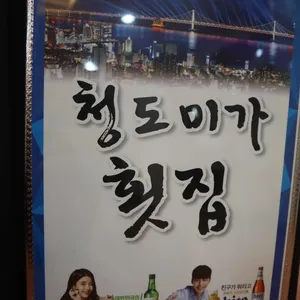 청도미가
횟집